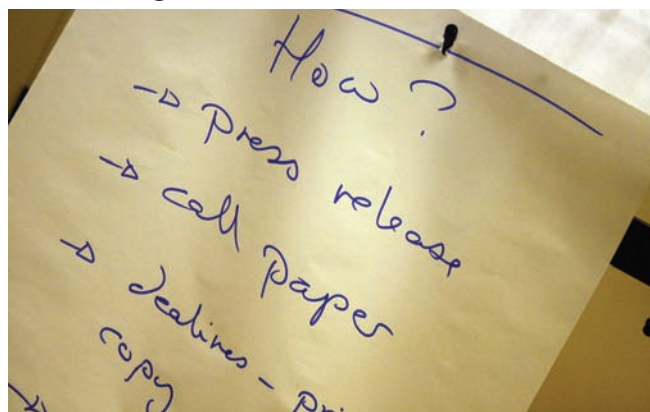 How?
→ press release
→ call paper
→ dealines -
copy
→